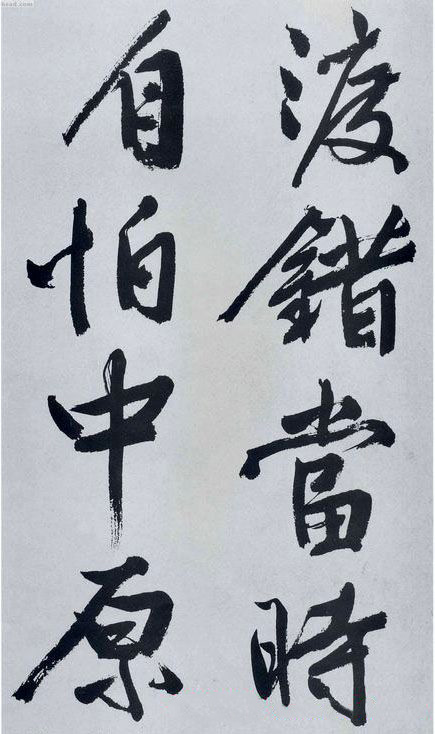 渡錯當時
自怕中原